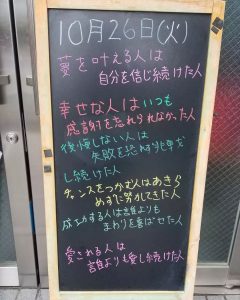 10月26日(火)
夢を叶える人は
自分を信じ続けた人
幸せな人はいつも
感謝を忘れられなかった人
後悔しない人は
失敗を恐れず
し続けた人
チャンスをつかむ人はあきら
めずに努力してきた人
成功する人は誰よりも
まわりを喜ばせた人
愛される人は
誰よりも愛し続けた人